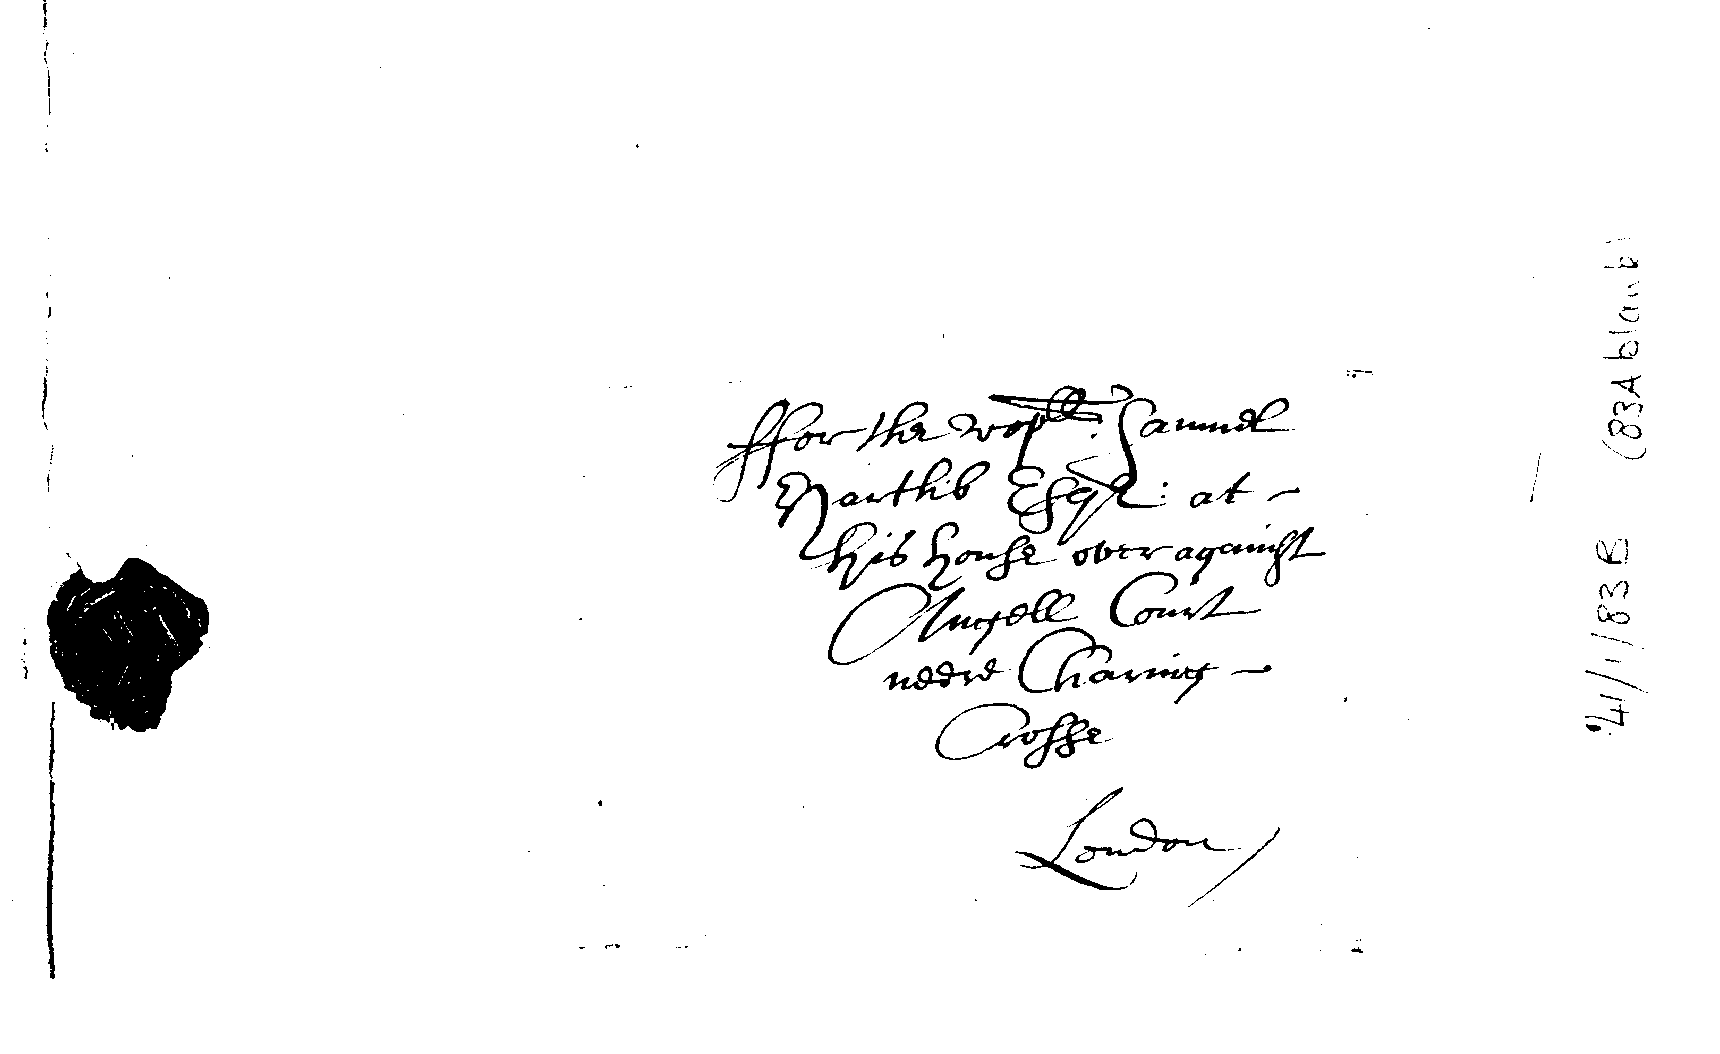 ffor the wopll: Samuel
Hartlib Esqr: at
his house over against
Angell Court
neere Charing
Crosse
London
41/1/83B (83A blank)